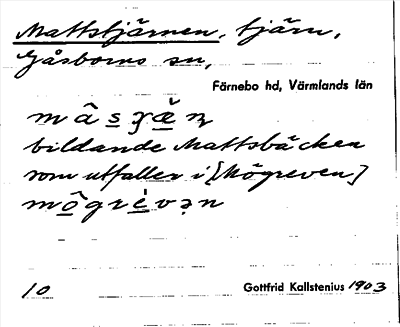 Mattstjärnen, tjärn,
Gåsborns sn,
Färnebo hd, Värmlands län
bildande Mattsbäcken
som utfaller i [Mögreven]
10 Gottfrid Kallstenius 1903